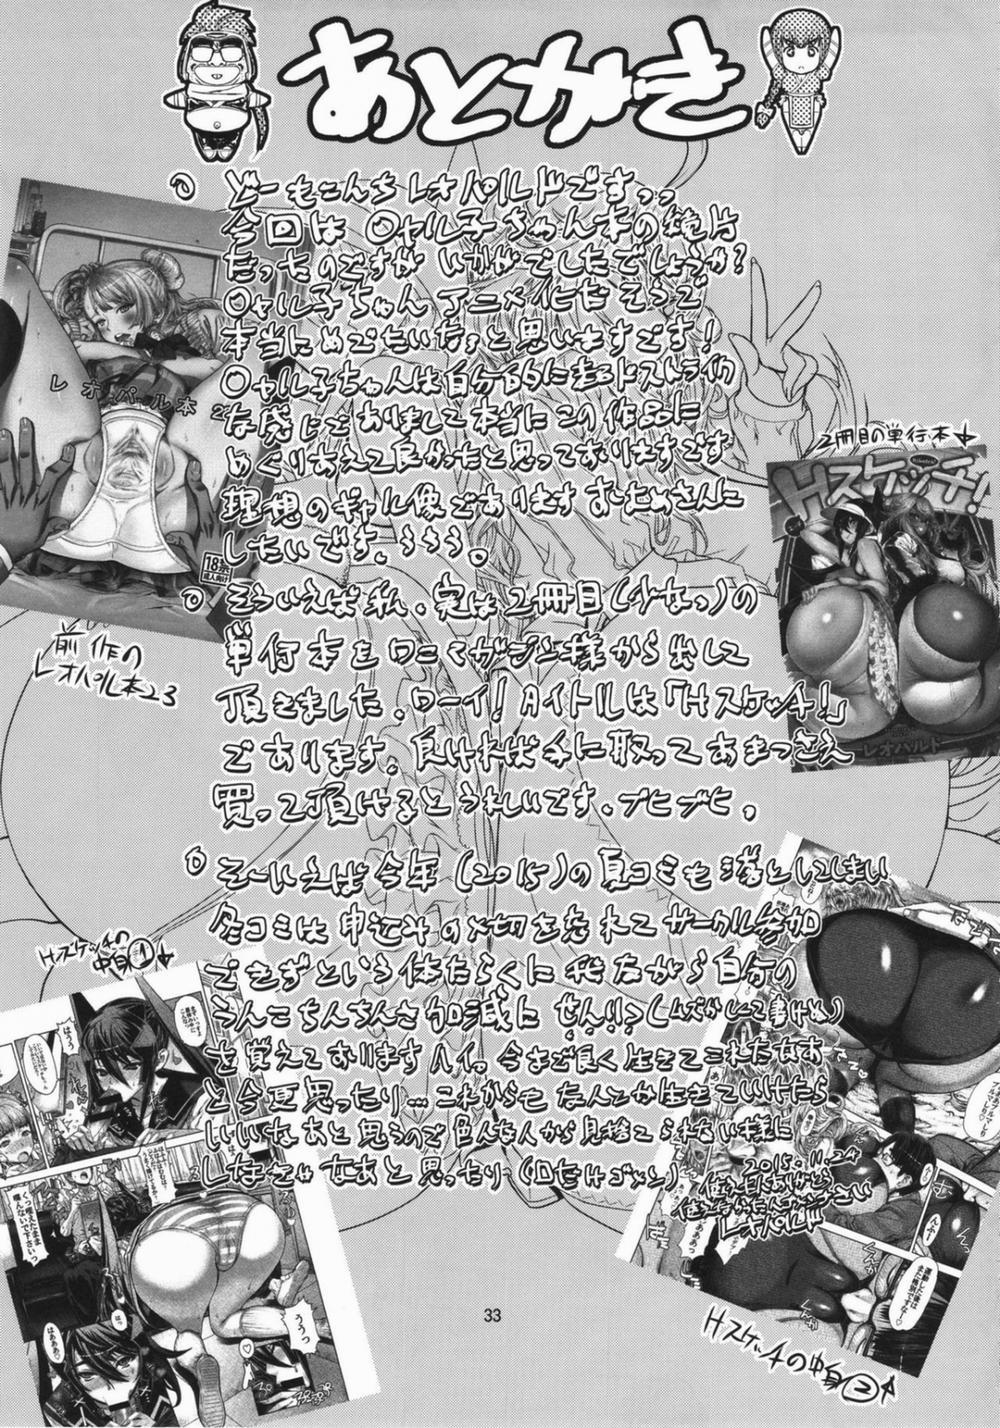 あとがき
どーもこんちレオパルドですっっ
今回は〇ャル子ちゃん本の続片
だったのですがいかがでしたでしょうか?
〇ャル子ちゃんアニメ化だそうで
本当にめでたいなぁと思いますです!
〇ャル子ちゃんは自分的に超ドストライク
な感じでありまして本当にこの作品に
めぐりあえて良かったと思っておりますです
理想のギャル像でありますおしためさんに
したいです、ううう。
そういえば私、実は2冊目(少なっ)の
単行本をワニマガジン様から出して
頂きました。ワーイ!タイトルは「Hスケッチ!」
であります。良ければ手に取ってあまつさえ
買って頂けるとうれしいです、ブヒブヒ。
そーいえば今年(2015)の夏コミも落としてしまい
冬コミは申込みの〆切を忘れてサークル参加
できずという体たらくに我ながら自分の
うんこちんちんさ加減にせんりつ(ムズかしくて書けぬ)
を覚えておりますハイ。今まで良く生きてこれたなあ
と今更思ったり…これからもなんとか生きていけたら
いいなあと思うので色んな人から見捨てられない様に
しなきゃなあと思ったり(口だけゴメン)
2015.11.24
レオパルド
レオパル本
18禁
成人向け
前作の
レオパル本23
2冊目の単行本
Hスケッチ!
レオパルド
Hスケッチの
中身①
はうう
咥えたまま
喋んないで下さいっ
ううっ
はっ
はあああ
運動した後は
また格別ですなー
んふー
くんか
くんか
Hスケッチの中身②
33